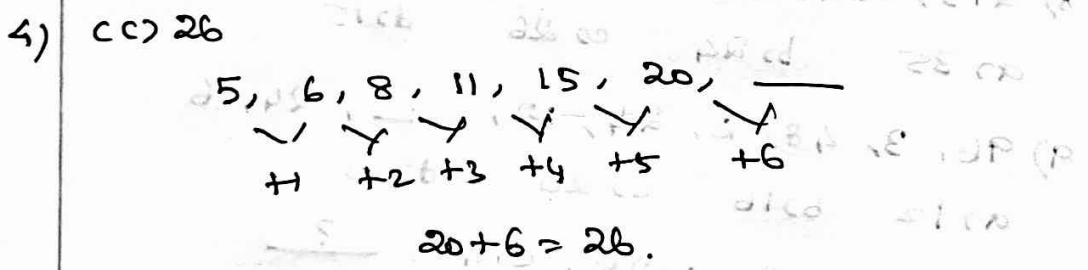 4) (c) 26
5, 6, 8, 11, 15, 20, ___
+1 +2 +3 +4 +5 +6
20+6 = 26.